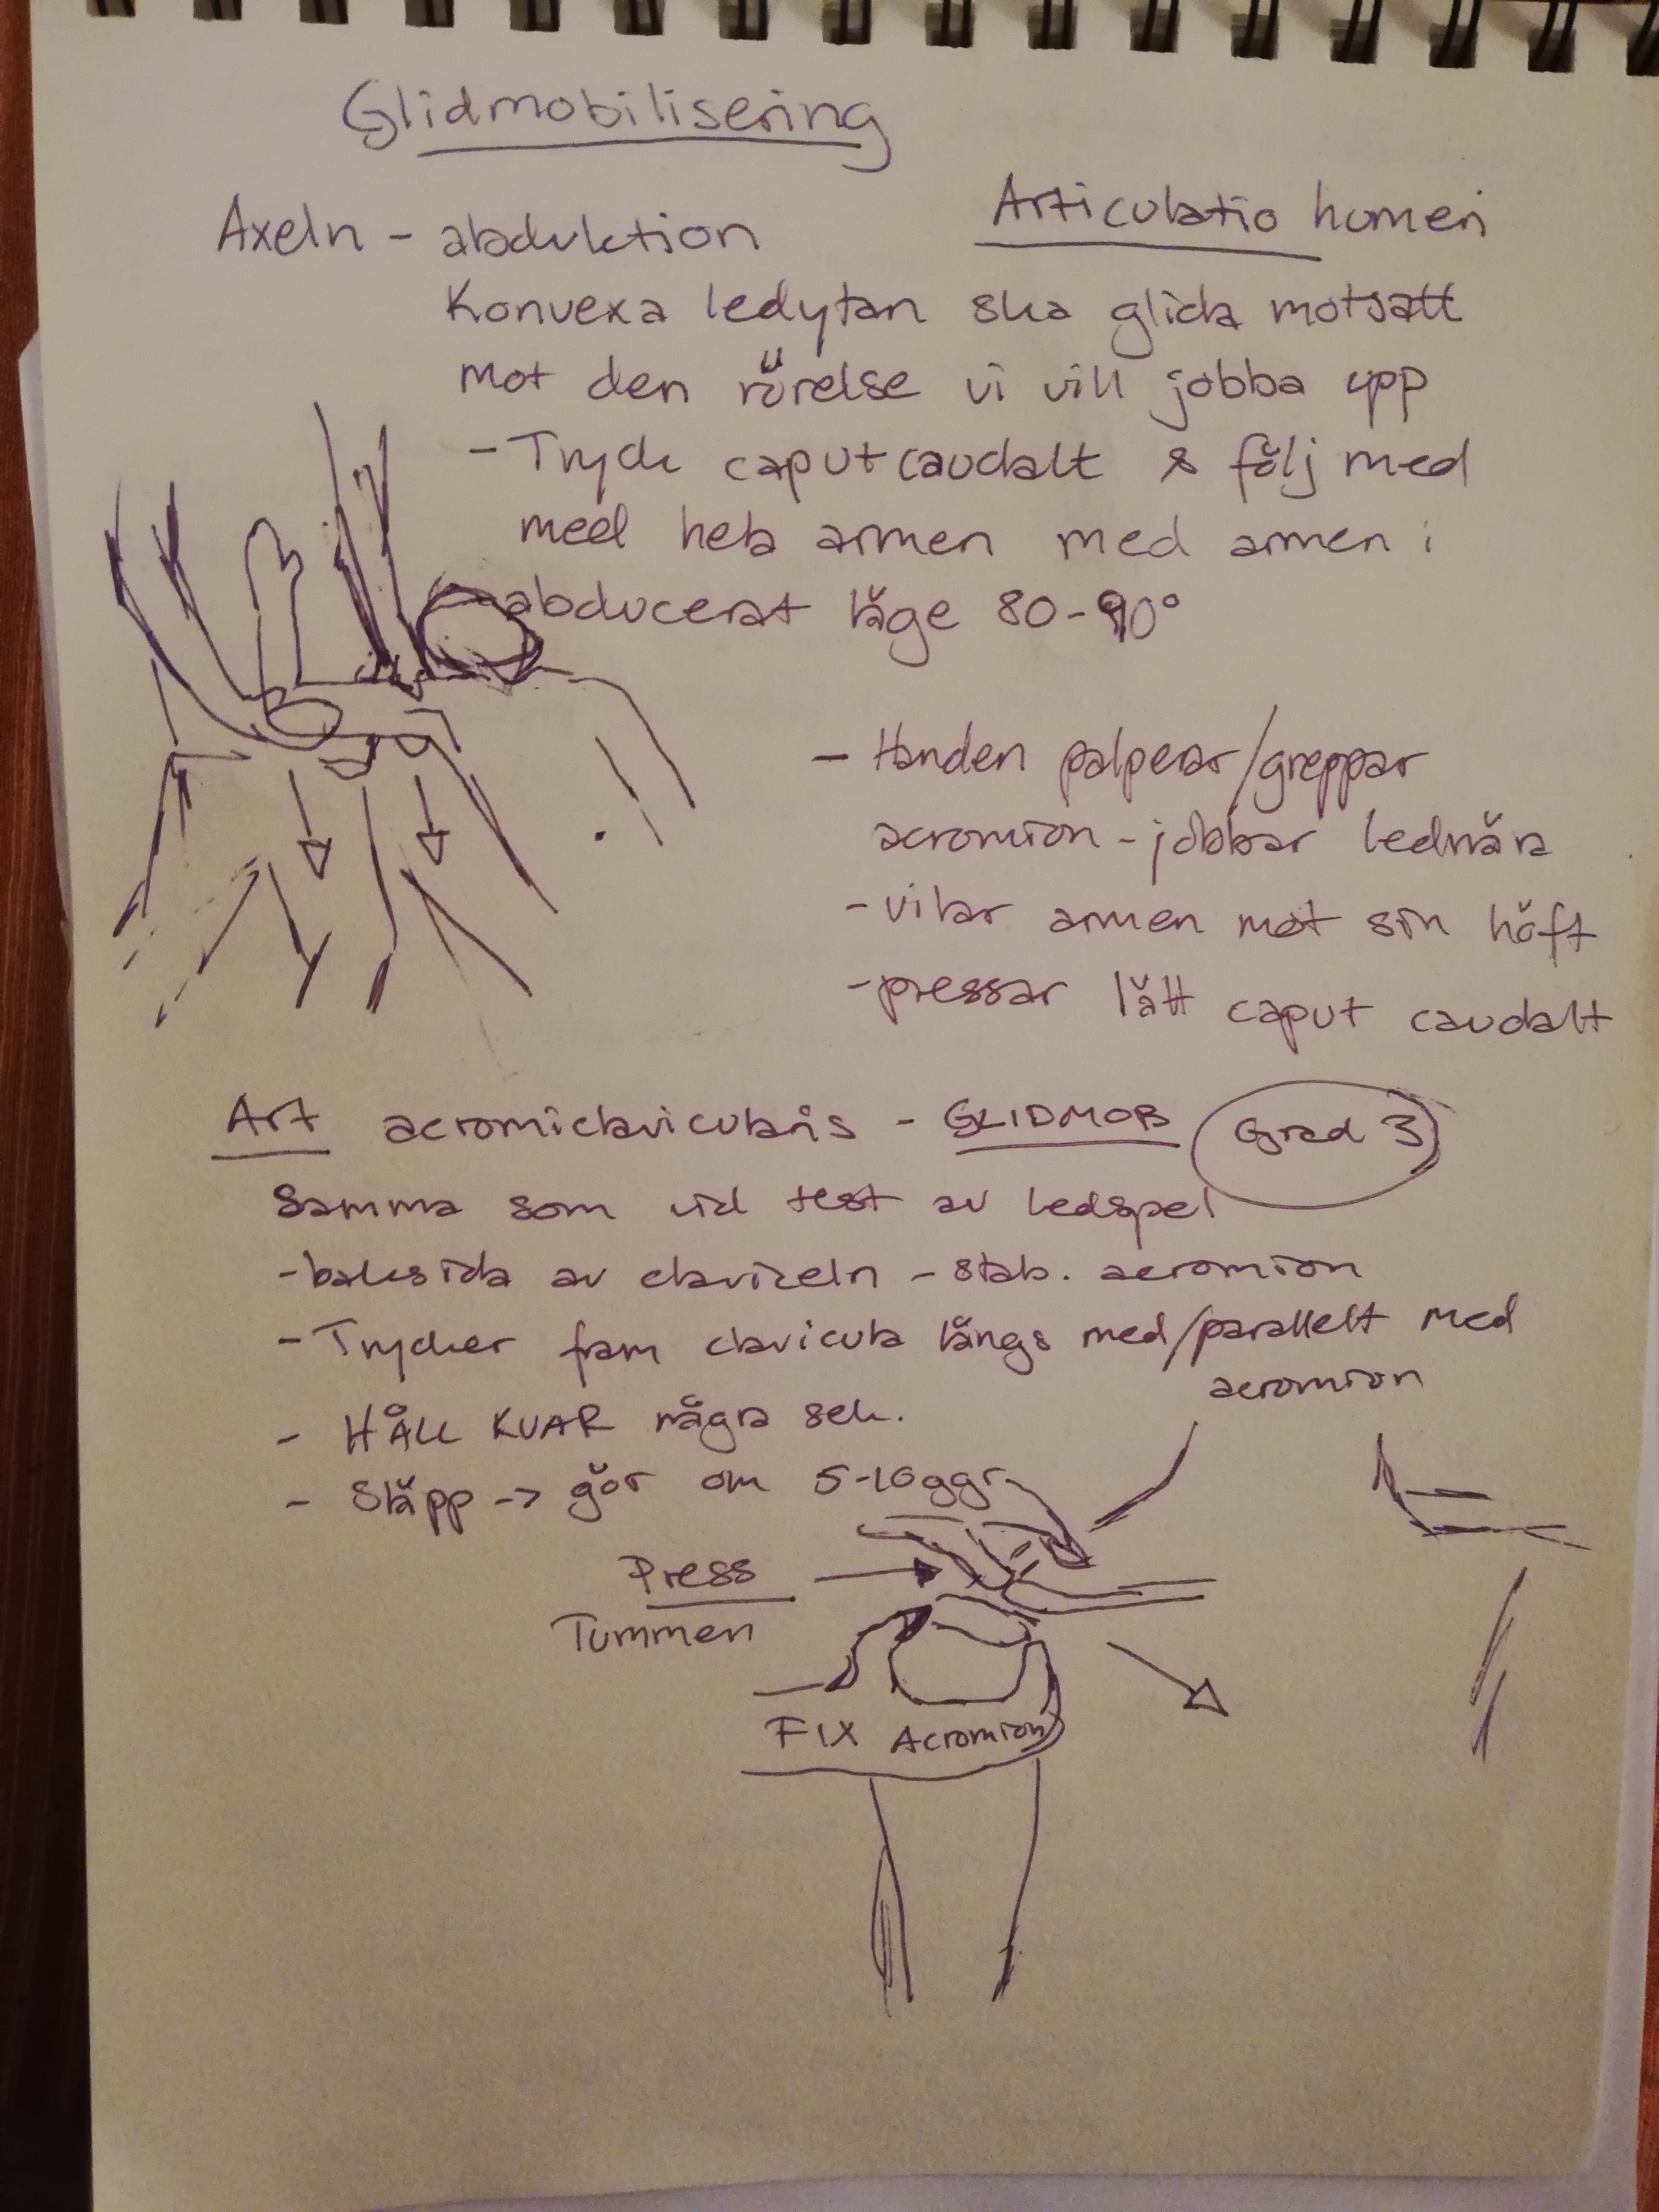 Glidmobilisering
Axeln - abduktion
Articulatio humeri
Konvexa ledytan ska glida motsatt
mot den rörelse vi vill jobba upp
- Tryck caput caudalt & följ med
med hela armen med armen i
abducerat läge 80-90°
- Handen palperar/greppar
acromion - jobbar lednära
- vilar armen mot sin höft
- pressar lätt caput caudalt
Art acromiclavicularis - GLIDMOB Grad 3
Samma som vid test av ledspel
- baksida av clavikeln - stab. acromion
- Trycker fram clavicula längs med/parallellt med
acromion
- HÅLL KVAR några sek.
- Släpp -> gör om 5-10 ggr
Press
Tummen
FIX Acromion